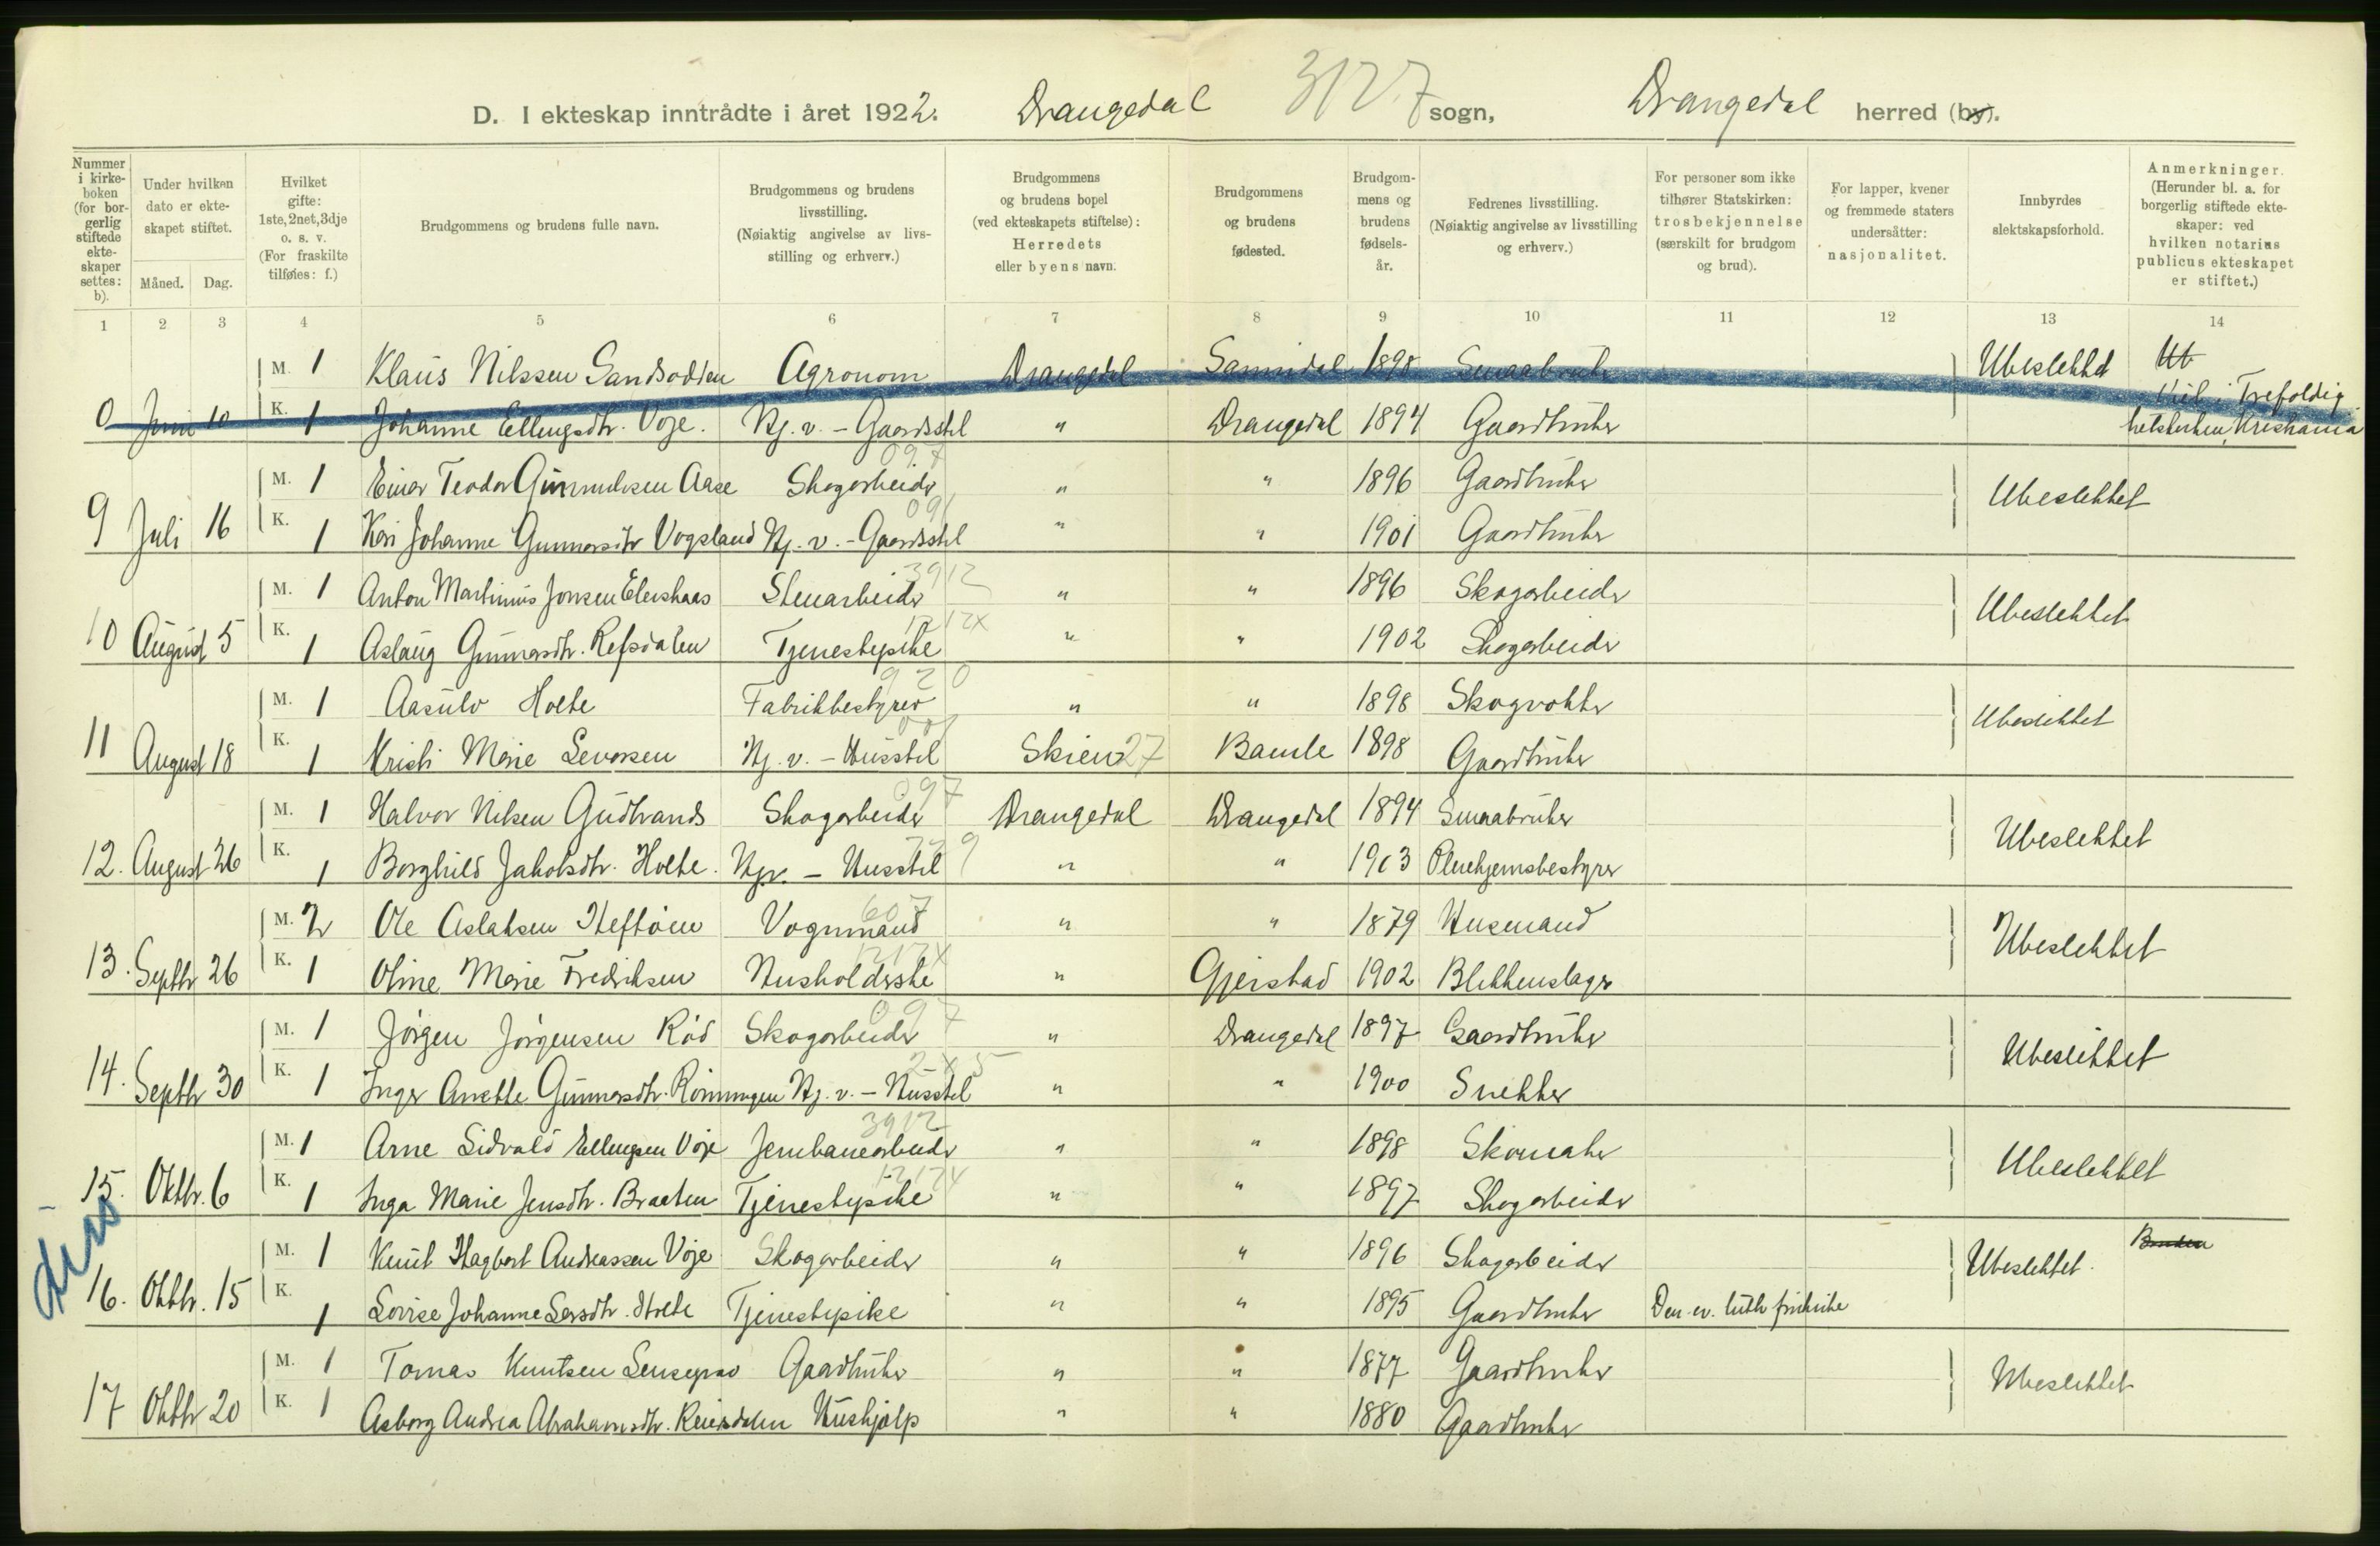 D. I ekteskap inntrådte i året 1922. Drangedal 3127 sogn, Drangedal herred (by).
Nummer i kirke-boken (for bor-gerlig stiftede ekte-skaper settes: b).
Under hvilken dato er ekte-skapet stiftet.
Måned. Dag.
Hvilket gifte: 1ste, 2net, 3dje o. s. v. (For fraskilte tilføies: f.)
Brudgommens og brudens fulle navn.
Brudgommens og brudens livsstilling. (Nøiaktig angivelse av livs-stilling og erhverv.)
Brudgommens og brudens bopel (ved ekteskapets stiftelse): Herredets eller byens navn.
Brudgommens og brudens fødested.
Brudgom-mens og brudens fødsels-år.
Fedrenes livsstilling. (Nøiaktig angivelse av livsstilling og erhverv.)
For personer som ikke tilhører Statskirken: trosbekjennelse (særskilt for brudgom og brud).
For lapper, kvener og fremmede staters undersåtter: nasjonalitet.
Innbyrdes slektskapsforhold.
Anmerkninger. (Herunder bl. a. for borgerlig stiftede ekte-skaper: ved hvilken notarius publicus ekteskapet er stiftet.)
1 2 3 4 5 6 7 8 9 10 11 12 13 14
M. 1 Klaus Nilssen Sandsodden Agronom Drangedal Sannidal 1898 Smaabruker Ubeslektet
0 Juni 10 K. 1 Johanne Ellingsdtr. Voje. Hj. v. - Gaardsstel " Drangedal 1894 Gaardbruker Viet i Trefoldighetskirken, Kristiania
M. 1 Einar Teodor Gunnulvsen Aase Skogarbeider 097 " " 1896 Gaardbruker Ubeslektet
9 Juli 16 K. 1 Kari Johanne Gunnarsdtr Vogsland Hj. v. - Gaardsstel 091 " " 1901 Gaardbruker
M. 1 Anton Martinius Jonsen Elershaas Stenarbeider 3912 " " 1896 Skogarbeider Ubeslektet
10 August 5 K. 1 Aslaug Gunnarsdtr. Refsdalen Tjenestepike 1212X " " 1902 Skogarbeider
M. 1 Aasulv Holte Fabrikkbestyrer 920 " " 1898 Skogvokter Ubeslektet
11 August 18 K. 1 Kristi Marie Levorsen Hj. v. - Husstel Skien 27 Bamle 1898 Gaardbruker
M. 1 Halvor Nilsen Gudbrands Skogarbeider 097 Drangedal Drangedal 1894 Smaabruker Ubeslektet
12. August 26 K. 1 Borghild Jakobsdtr. Holte. Hjv. - Husstel " " 1903 Pleiehjemsbestyrer
M. 2 Ole Aslaksen Heftøen Vognmand 607 " " 1879 Husmand Ubeslektet
13. Septbr 26 K. 1 Oline Marie Fredriksen Husholderske 1212X " Gjerstad 1902 Blikkenslager
M. 1 Jørgen Jørgensen Rød Skogarbeider 097 " Drangedal 1897 Gaardbruker Ubeslektet
14. Septbr 30 K. 1 Inger Anette Gunnarsdtr. Rønningen Hj. v. - Husstel " " 1900 Snekker
M. 1 Arne Sidvald Ellingsen Voje Jernbanearbeider 3912 " " 1898 Skomaker Ubeslektet
15. Oktbr. 6 K. 1 Inga Marie Jensdtr. Braaten Tjenestepike 1212X " " 1897 Skogarbeider
M. 1 Knut Hagbart Andreassen Voje Skogarbeider " " 1896 Skogarbeider Ubeslektet. Bruden
16. Oktbr. 15 K. 1 Lovise Johanne Larsdtr. Holte Tjenestepike " " 1895 Gaardbruker Den ev. luth frikirke
M. 1 Tomas Knutsen Gaardbruker " " 1877 Gaardbruker Ubeslektet
17 Oktbr 20 K. 1 Asborg Andrea Abrahamsdtr. Reiersdalen Hushjælp " " 1880 Gaardbruker